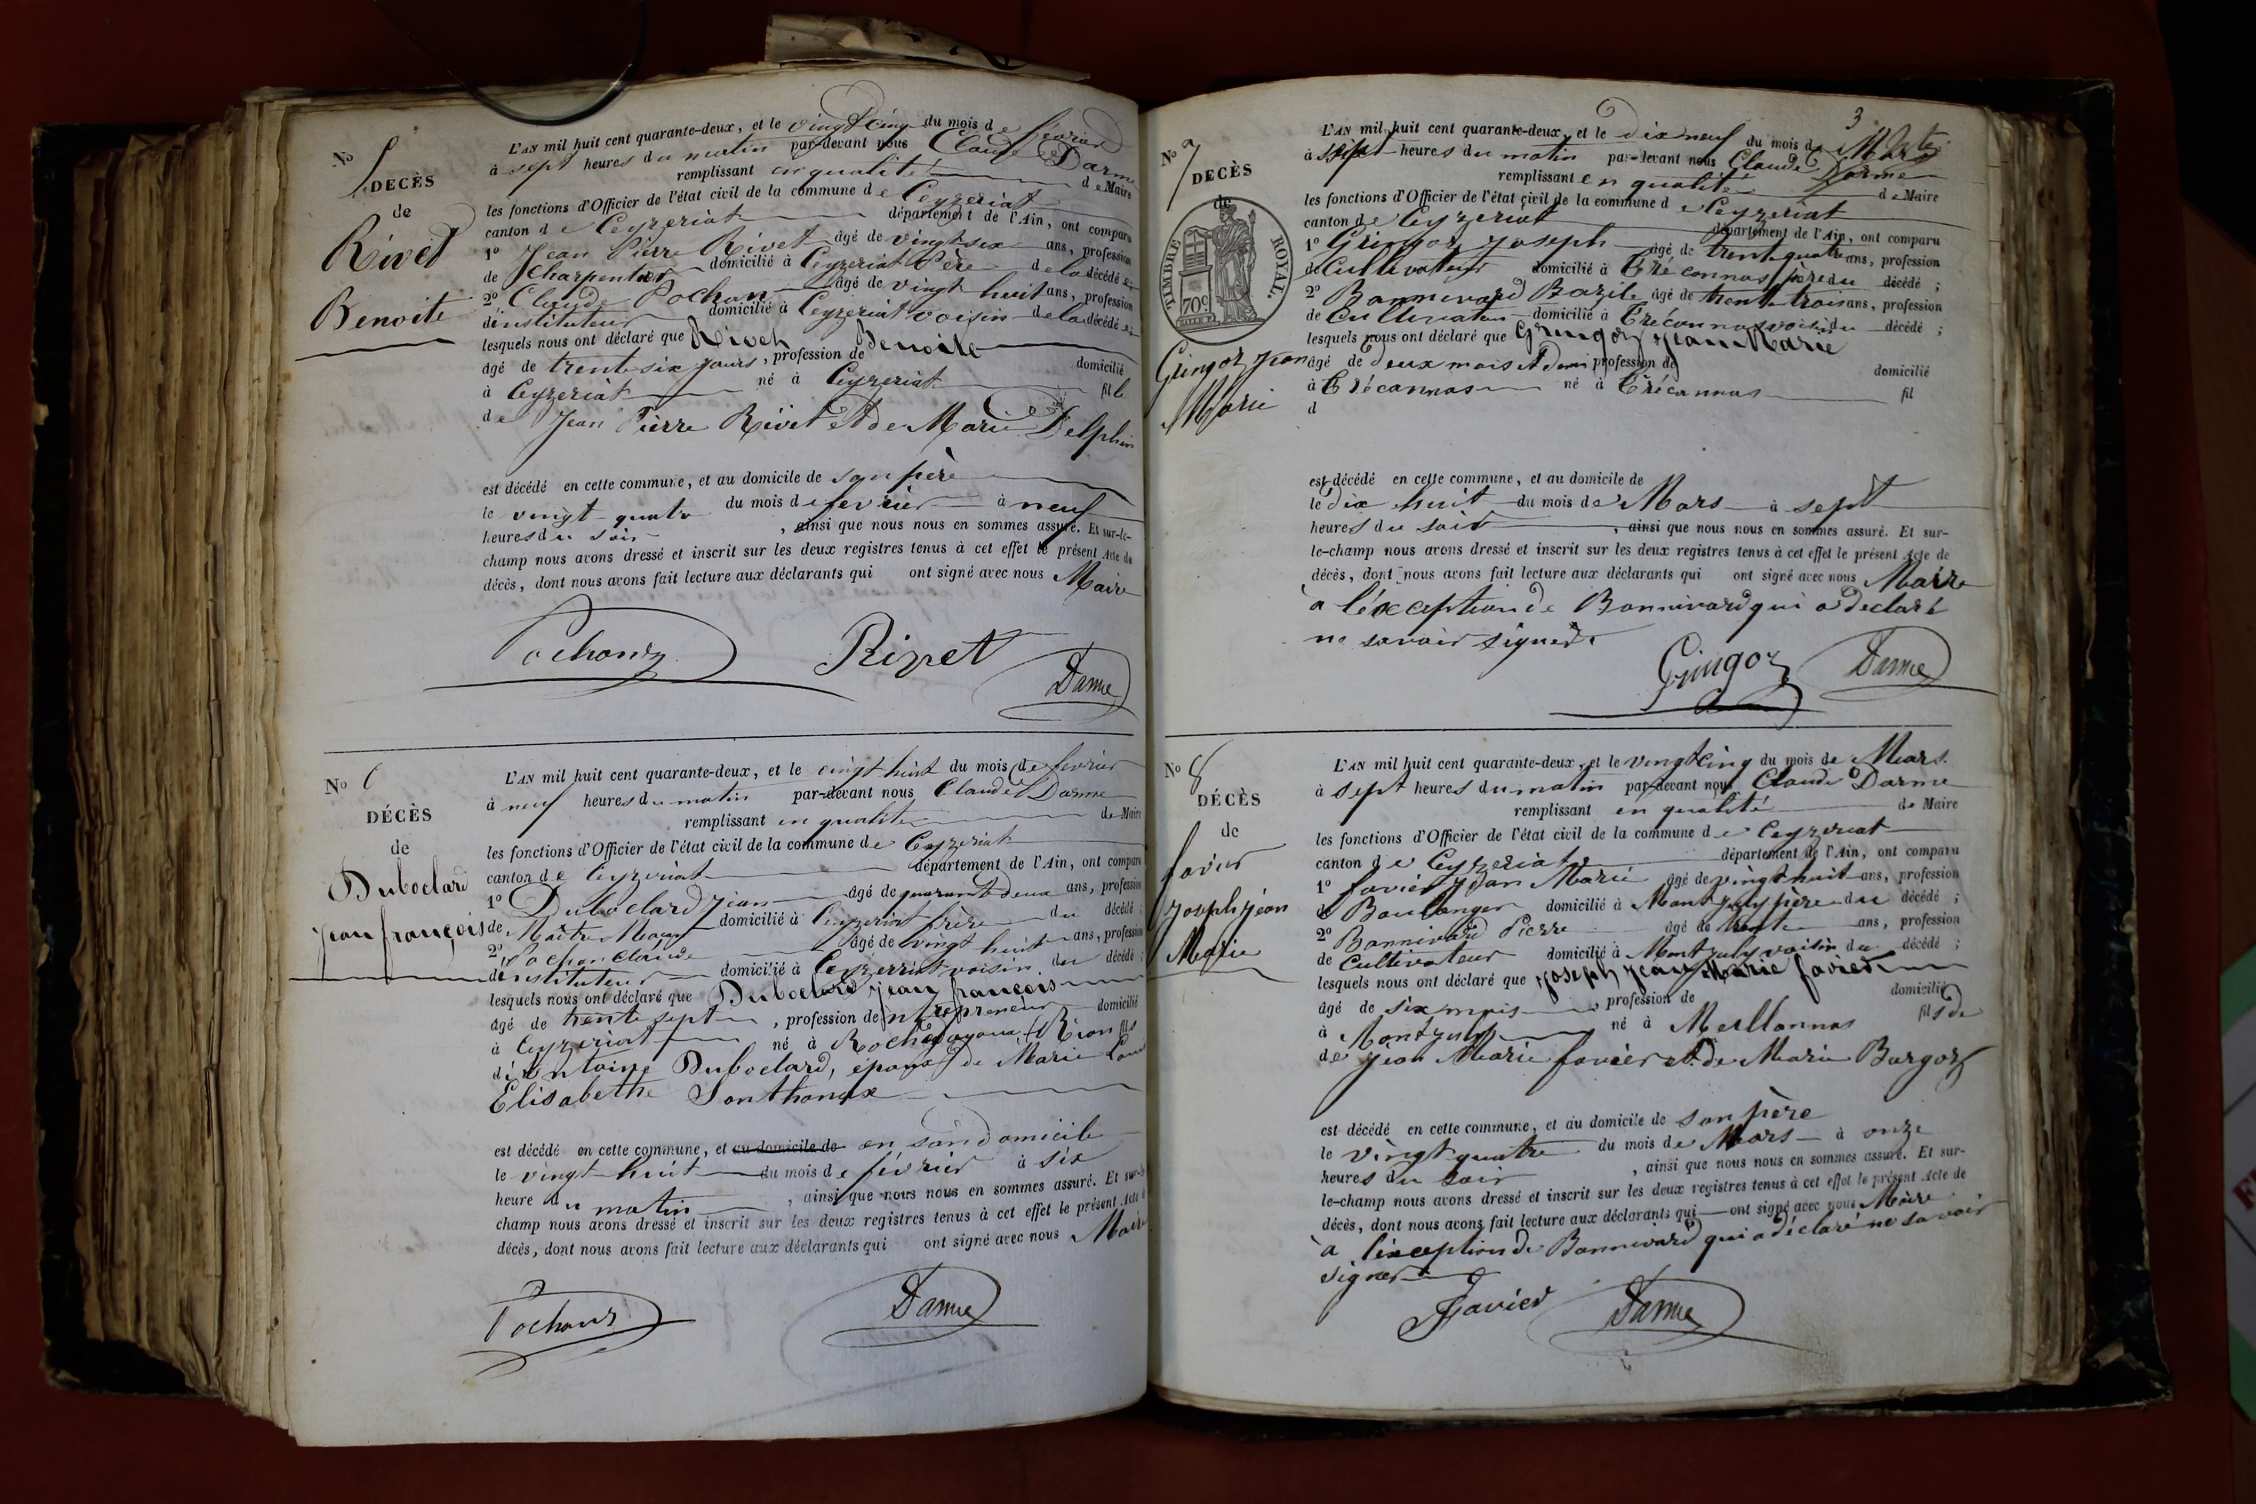 No 5
DECÈS
de
Rivet
Benoite
L'AN mil huit cent quarante-deux, et le vingt cinq du mois de fevrier
à sept heures du matin par-devant nous Claude Darme
remplissant en qualité de Maire
les fonctions d'Officier de l'état civil de la commune de Ceyzeriat
canton de Ceyzeriat département de l'Ain, ont comparu
1º Jean Pierre Rivet âgé de vingt six ans, profession
de Charpentier domicilié à Ceyzeriat Père de la décédée
2º Claude Pochon âgé de vingt huit ans, profession
d'instituteur domicilié à Ceyzeriat voisin de la décédée
lesquels nous ont déclaré que Rivet Benoite
âgé de trente six jours, profession de domicilié
à Ceyzeriat né à Ceyzeriat fille
de Jean Pierre Rivet et de Marie Delphin
est décédé en cette commune, et au domicile de son père
le vingt quatre du mois de fevrier à neuf
heures du soir, ainsi que nous nous en sommes assuré. Et sur-le-
champ nous avons dressé et inscrit sur les deux registres tenus à cet effet le présent Acte de
décès, dont nous avons fait lecture aux déclarants qui ont signé avec nous Maire
Pochon Rivet Darme
No 6
DÉCÈS
de
Duboclard
jean françois
L'AN mil huit cent quarante-deux, et le vingt huit du mois de fevrier
à neuf heures du matin par-devant nous Claude Darme
remplissant en qualité de Maire
les fonctions d'Officier de l'état civil de la commune de Ceyzeriat
canton de Ceyzeriat département de l'Ain, ont comparu
1º Duboclard jean âgé de quarante deux ans, profession
de Maître Maçon domicilié à Ceyzeriat frère du décédé ;
2º Pochon Claude âgé de vingt huit ans, profession
d'instituteur domicilié à Ceyzerriat voisin du décédé ;
lesquels nous ont déclaré que Duboclard jean françois
âgé de trente sept, profession de ntrepreneur domicilié
à Ceyzeriat né à Rion fils
d'Antoine Duboclard, époux de Marie
Elisabethe Sonthonax
est décédé en cette commune, et au domicile de en son domicile
le vingt huit du mois de février à six
heure du matin, ainsi que nous nous en sommes assuré. Et sur-le-
champ nous avons dressé et inscrit sur les deux registres tenus à cet effet le présent Acte de
décès, dont nous avons fait lecture aux déclarants qui ont signé avec nous Maire
Pochon Darme
3
No 7
DECÈS
de
TIMBRE ROYAL.
70c
Gringoz jean
Marie
L'AN mil huit cent quarante-deux, et le dix neuf du mois de Mars
à sept heures du matin par-devant nous Claude Darme
remplissant en qualité de Maire
les fonctions d'Officier de l'état civil de la commune de Ceyzeriat
canton de Ceyzeriat département de l'Ain, ont comparu
1º Gringoz joseph âgé de trente quatre ans, profession
de Cultivateur domicilié à Tréconnas père du décédé ;
2º Bonnivard Bazile âgé de trente trois ans, profession
de Cultivateur domicilié à Tréconnas voisin du décédé ;
lesquels nous ont déclaré que Gringoz jean Marie
âgé de deux mois et demi profession de domicilié
à Tréconnas né à Tréconnas fil
d
est décédé en cette commune, et au domicile de
le dix huit du mois de Mars à sept
heures du soir, ainsi que nous nous en sommes assuré. Et sur-
le-champ nous avons dressé et inscrit sur les deux registres tenus à cet effet le présent Acte de
décès, dont nous avons fait lecture aux déclarants qui ont signé avec nous Maire
à l'éxception de Bonnivard qui a declaré
ne savoir signer.
Gringoz Darme
No 8
DÉCÈS
de
favier
joseph jean
Marie
L'AN mil huit cent quarante-deux, et le vingt cinq du mois de Mars.
à sept heures du matin par-devant nous Claude Darme
remplissant en qualité de Maire
les fonctions d'Officier de l'état civil de la commune de Ceyzeriat
canton de Ceyzeriat département de l'Ain, ont comparu
1º favier jean Marie âgé de vingt huit ans, profession
de Boulanger domicilié à Montjuly père du décédé ;
2º Bonnivard Pierre âgé de trente ans, profession
de Cultivateur domicilié à Montjuly voisin du décédé ;
lesquels nous ont déclaré que joseph jean Marie favier
âgé de six mois, profession de domicilié
à Montjuly né à Meillonnas fils de
de jean Marie favier et de Marie Borgoz
est décédé en cette commune, et au domicile de son père
le vingt quatre du mois de Mars à onze
heures du soir, ainsi que nous nous en sommes assuré. Et sur-
le-champ nous avons dressé et inscrit sur les deux registres tenus à cet effet le présent Acte de
décès, dont nous avons fait lecture aux déclarants qui ont signé avec nous Maire
à l'éxception de Bonnivard qui a déclaré ne savoir
signer
Favier Darme